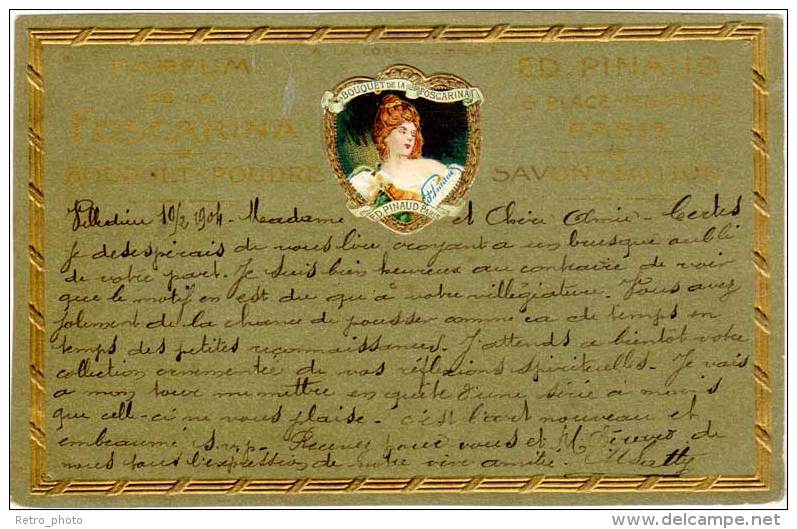 A LA
PARFUM
ED. PINAUD
BOUQUET DE LA FOSCARINA
PLACE
FOSCARINA
PARIS
POUDRE
SAVON LOTION
ED. PINAUD PARIS
Villedieu 10/2 1904 - Madame et Chère Amie - Certes
je desespérais de vous lire croyant a un brusque oubli
de votre part. Je suis bien heureux au contraire de voir
que le motif en est du qu'à votre villégiature. Vous avez
joliment de la chance de pousser comme ca de temps en
temps des petites reconnaissances. J'attends a bientôt votre
collection ornementée de vos réflexions spirituelles. Je vais
a mon tour me mettre en quête d'une série à moins
que celle-ci ne vous plaise. C'est l'art nouveau et
embeaumé s.v.p. Recevez pour vous et M. de
nous tous l'expression de notre vive amitié.
Retro_photo
delcampe.net